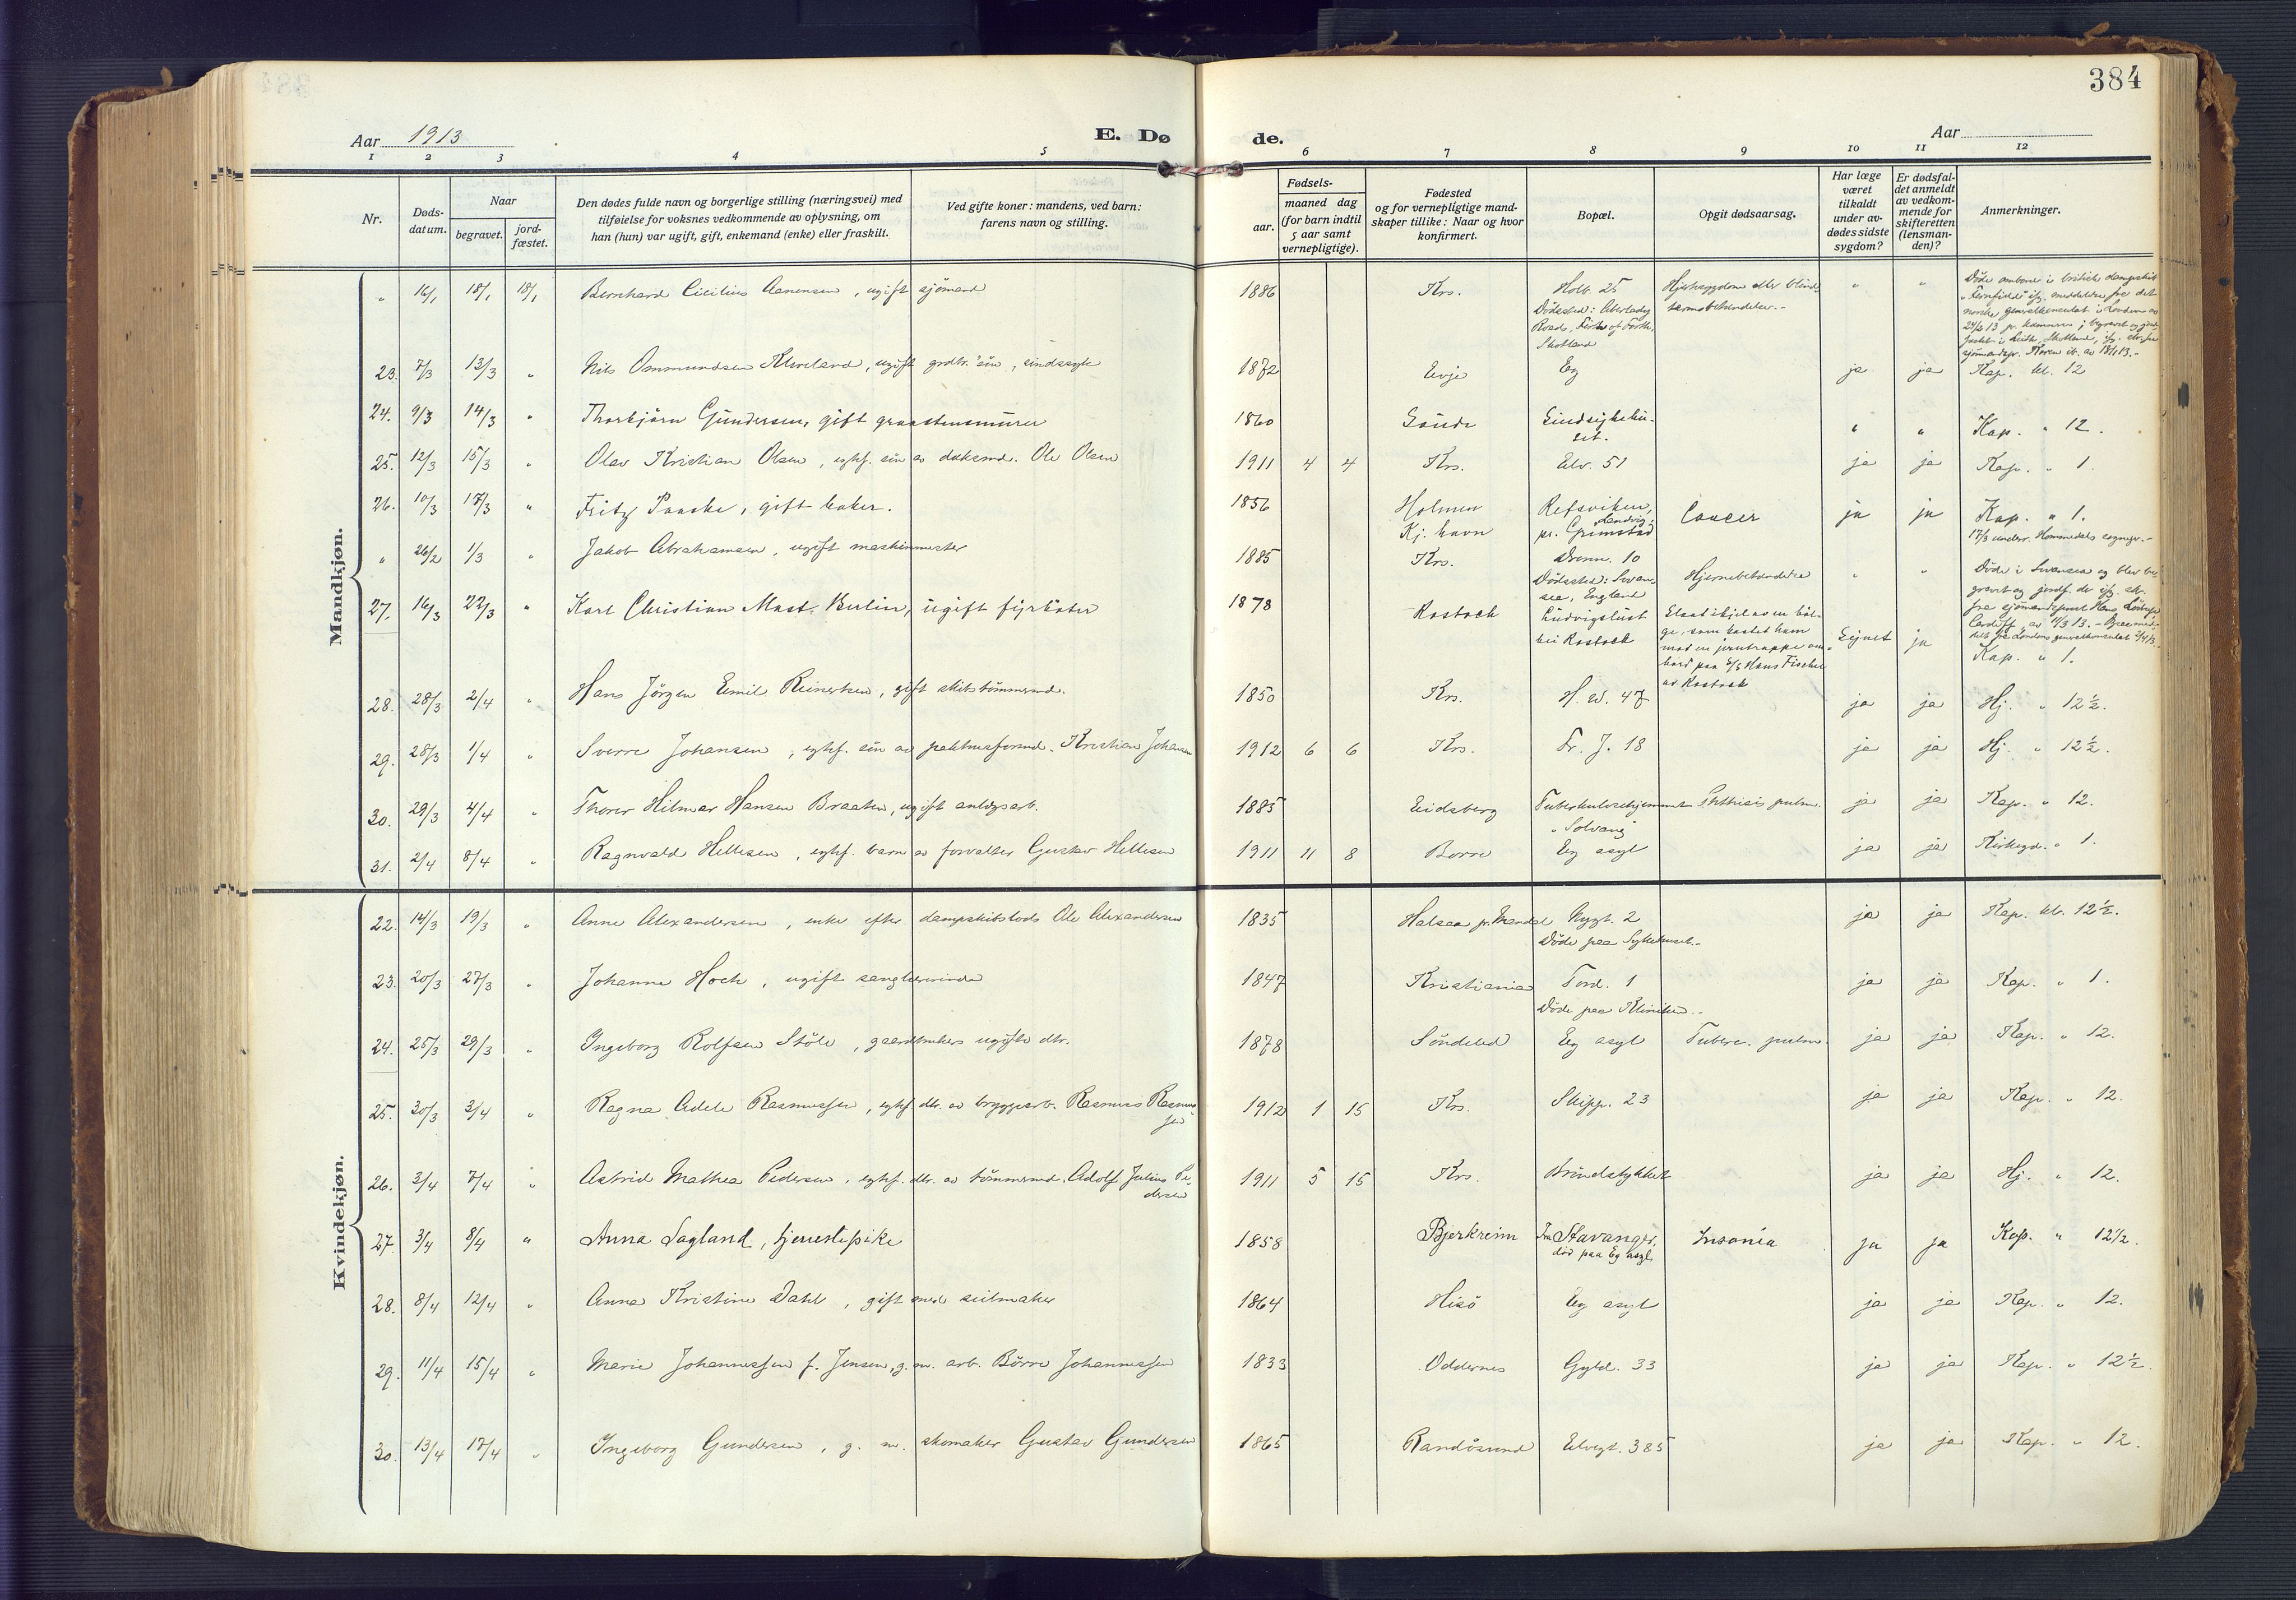 384
Aar 1913 E. Dø de. Aar
1 2 3 4 5 6 7 8 9 10 11 12
Nr. Døds-datum. Naar begravet. jord-fæstet. Den dødes fulde navn og borgerlige stilling (næringsvei) med tilføielse for voksnes vedkommende av oplysning, om han (hun) var ugift, gift, enkemand (enke) eller fraskilt. Ved gifte koner: mandens, ved barn: farens navn og stilling. Fødsels- aar. maaned dag (for barn indtil 5 aar samt vernepligtige). Fødested og for vernepligtige mand-skaper tillike: Naar og hvor konfirmert. Bopæl. Opgit dødsaarsag. Har læge været tilkaldt under av-dødes sidste sygdom? Er dødsfal-det anmeldt av vedkom-mende for skifteretten (lensman-den)? Anmerkninger.
Mandkjøn.
" 16/1 18/1 18/1 Bernhard Cicilius Aanensen, ugift sjømand 1886 Krs. Holb. 25 Dødssted: Aberlady Roads, Firth of Forth, Skotland Hjertesygdom eller blind-tarmsbetændelse.- " "
23. 7/3 13/3 " Nils Ommundsen Kleveland, ugift grdbr. søn, sindssyk 1872 Evje Eg ja ja Kap. kl. 12
24. 9/3 14/3 " Thorbjørn Gundersen, gift graastensmurer 1860 Sindsykehu-set. " " Kap. " 12.
25. 12/3 15/3 " Olav Kristian Olsen, egtef. søn av doksmd. Ole Olsen 1911 4 4 Krs. Elv. 51 ja ja Kap. " 1.
26. 10/3 17/3 " Fritz Paaske, gift baker. 1856 Holmen Kj. havn Refsviken, Landvig pr. Grimstad Cancer ja ja Kap. " 1. 17/3 underr. Hommedals sognepr.-
" 26/2 1/3 " Jakob Abrahamsen, ugift maskinmester 1885 Krs. Dronn. 10 Dødssted: Swan-sea, England Hjernebetændelse " " Døde i Swansea og blev be-gravet og jordf. der
27. 16/3 22/3 " Karl Christian Mast. Bulin, ugift fyrbøter 1878 Rostock Ludvigslust bei Rostock Slaat ihjel av en bøl-ge, som kastet ham mod en jerntrappe om-bord paa S/S Hans Fischer av Rostock Eijnet ja Kap. " 1.
28. 28/3 2/4 " Hans Jørgen Emil Reinertsen, gift skibstømmermd. 1850 Krs. H. W. 47 ja ja Hj. " 12½.
29. 28/3 1/4 " Sverre Johansen, egtef. søn av pakhusformd. Kristian Johansen 1912 6 6 Krs. Fr. J. 18 ja ja Hj. " 12½.
30. 29/3 4/4 " Thorer Hilmar Hansen Braaten, ugift anlægsarb. 1885 Eidsberg Tuberkulosehjemmet "Solvang" Phthisis pulm. ja ja Kap. " 12.
31. 2/4 8/4 " Ragnvald Hellesen, egtef. barn av forvalter Gustav Hellesen 1911 11 8 Borre Eg asyl ja ja Kirkegd. " 1.
Kvindekjøn.
22. 14/3 19/3 " Anne Alexandersen, enke efter dampskibslods Ole Alexandersen 1835 Halsaa pr. Mandal Nygt. 2 Døde paa Sykehuset.- ja ja Kap. kl. 12½.
23. 20/3 27/3 " Johanne Hoch, ugift sanglærerinde 1847 Kristiania Tord. 1 Døde paa Kliniken.- ja ja Kap. " 1.
24. 25/3 29/3 " Ingeborg Rolfsen Støle, gaardbrukers ugifte dtr. 1878 Søndeled Eg asyl Tuberc. pulm. ja ja Kap. " 12.
25. 30/3 3/4 " Ragna Adele Rasmussen, egtef. dtr. av bryggearb. Rasmus Rasmus-sen 1912 1 15 Krs. Skipp. 23 ja ja Kap. " 12.
26. 3/4 7/4 " Astrid Mathea Pedersen, egtef. dtr. av tømmermd. Adolf Julius Pe-dersen 1911 5 15 Krs. Grundstykket ja ja Hj. " 12.
27. 3/4 8/4 " Anna Sagland, tjenestepike 1858 Bjerkreim Fra Stavanger, død paa Eg asyl Insania ja ja Kap. " 12½.
28. 8/4 12/4 " Anna Kristine Dahl, gift med seilmaker 1864 Hisø Eg asyl ja ja Kap. " 12.
29. 11/4 15/4 " Marie Johannessen f. Jensen, g. m. arb. Børre Johannessen 1833 Oddernes Gyld. 33 ja ja Kap. " 12½.
30. 13/4 17/4 " Ingeborg Gundersen, g. m. skomaker Gustav Gundersen 1865 Randøsund Elvegt. 385 ja ja Kap. " 12.